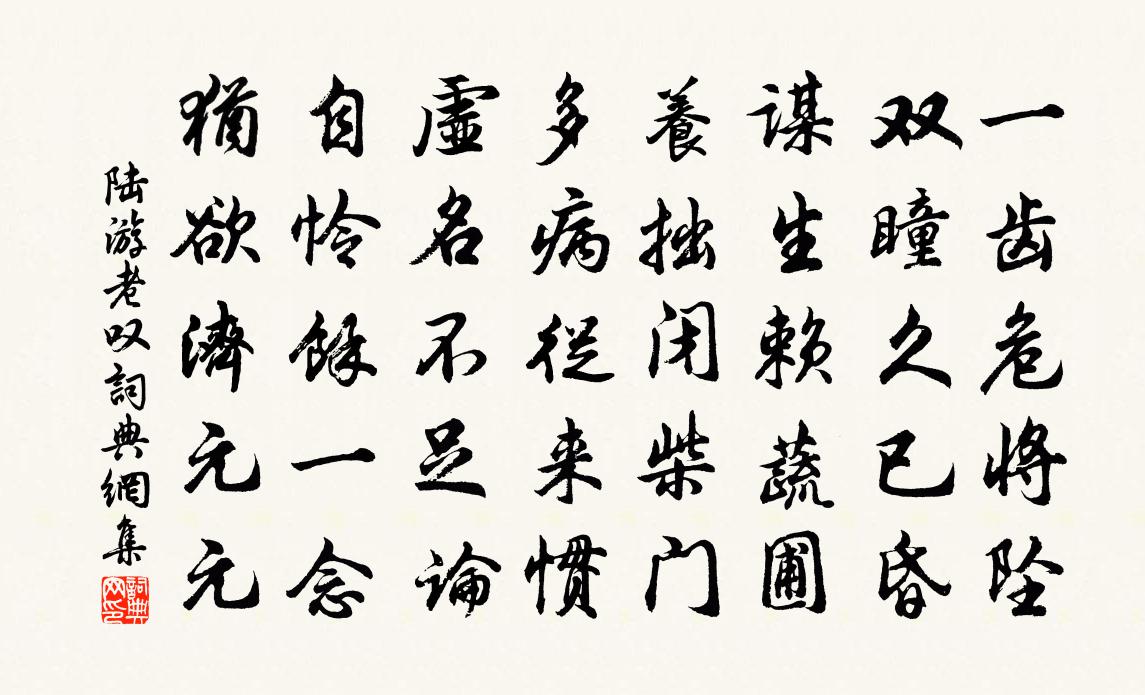 一齿危将坠
双瞳久已昏
谋生赖蔬圃
養拙闭柴门
多病從来惯
虛名不足论
自怜馀一念
猶欲濟元元
陆游老叹詞典網集
詞典网印